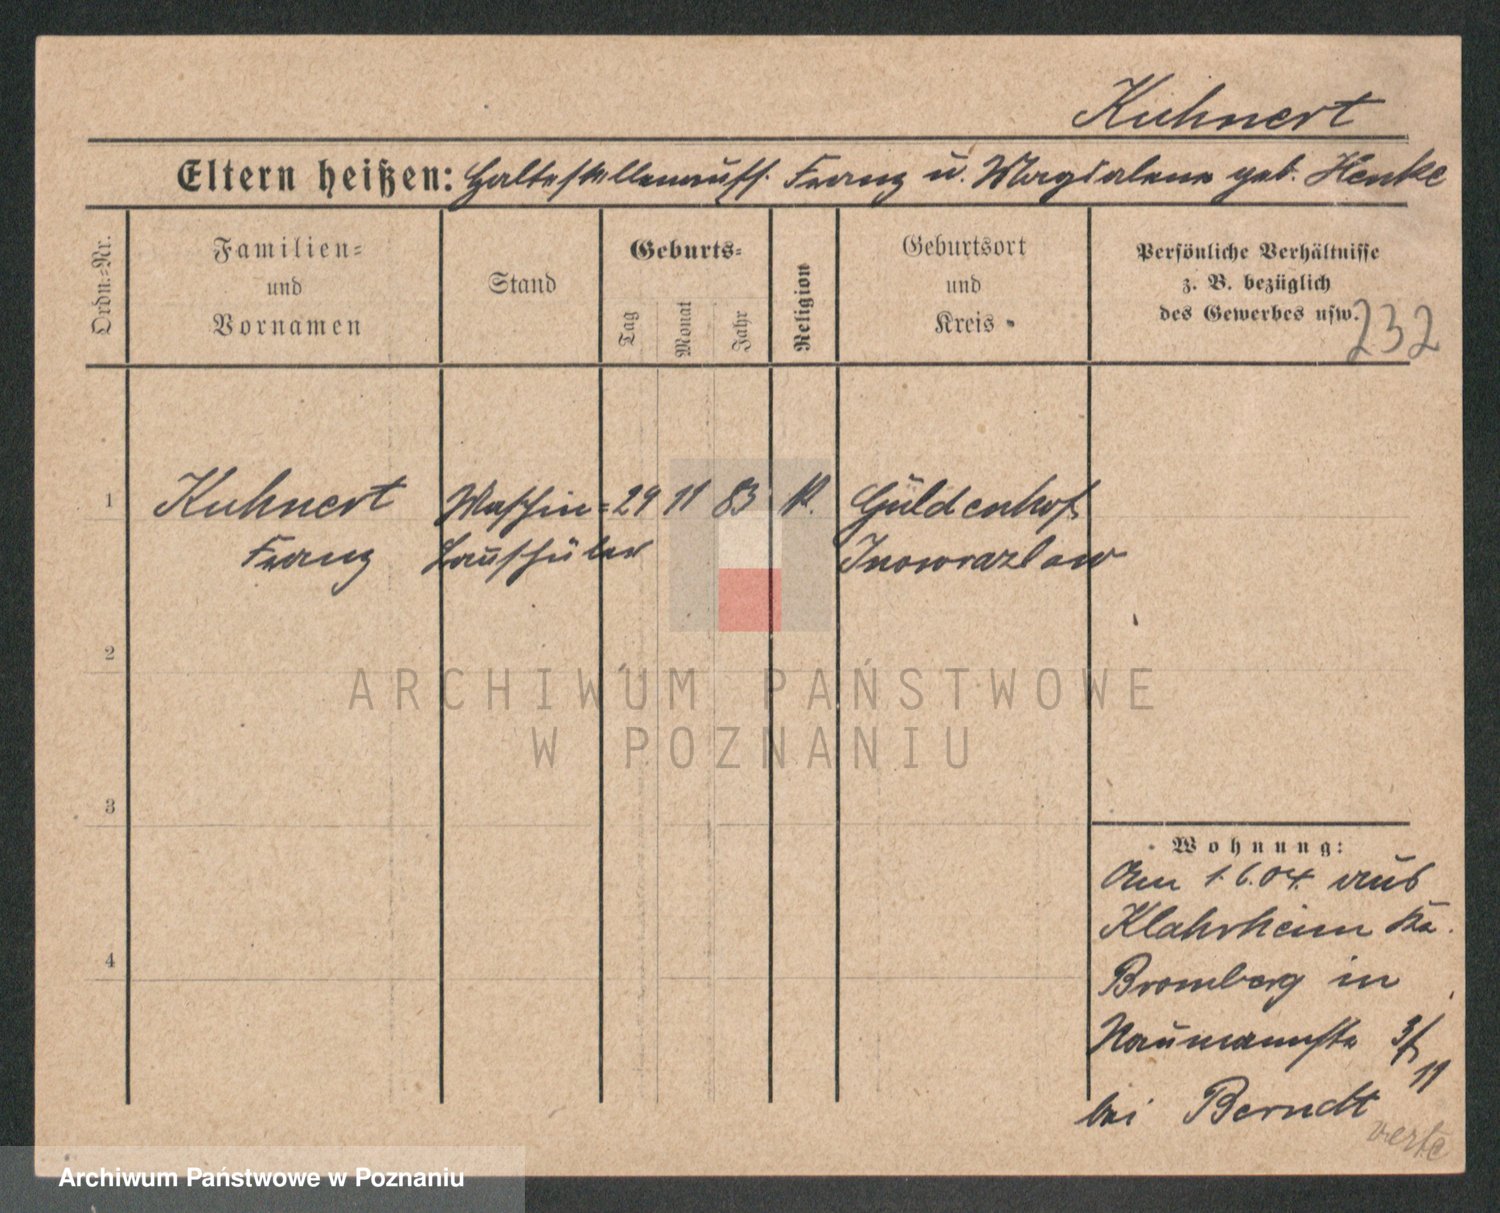 Kuhnert
Eltern heißen: Haltestellenaufs. Franz u. Magdalene geb. Henke
Ordn.=Nr.
Familien=
und
Vornamen
Stand
Geburts=
Tag
Monat
Jahr
Religion
Geburtsort
und
Kreis
Persönliche Verhältnisse
z. B. bezüglich
des Gewerbes usw.
232
1 Kuhnert 29 11 83 K. Güldenhof
Franz Inowrazlaw
2
3
4
Wohnung:
Am 1.6.04. aus
Klahrheim Kr.
Bromberg in
Naumannstr
11
bei Berndt
verte
ARCHIWUM PAŃSTWOWE
W POZNANIU
Archiwum Państwowe w Poznaniu